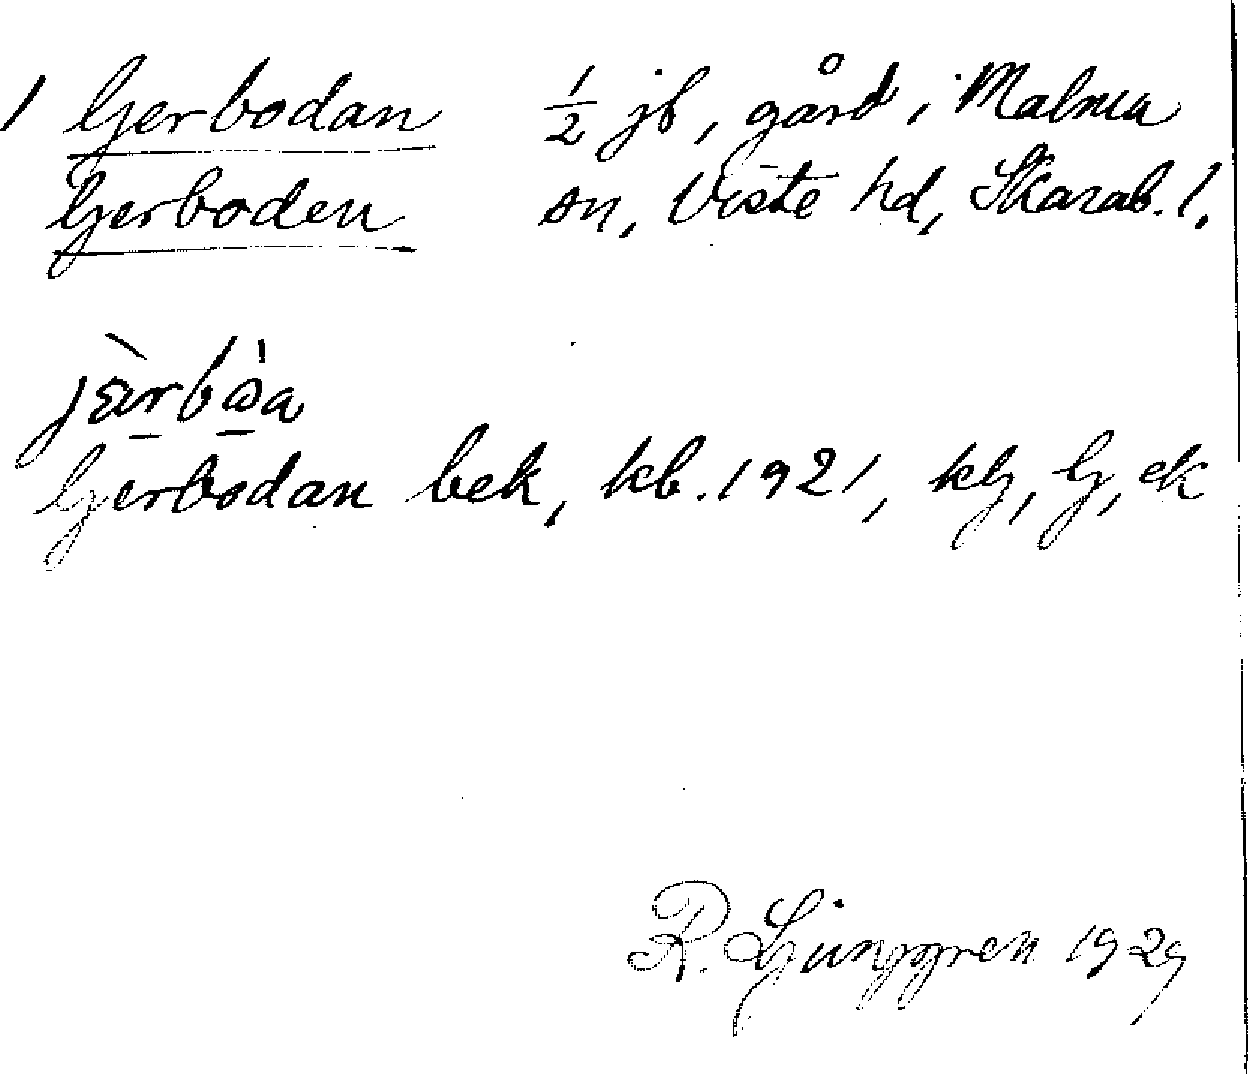 1 Gerbodan ½ jb, gård i Malma
Gerboden sn, Viste hd, Skarab. l.
Gerbodan bek, kb. 1921, kg, G, ek
R. Ljunggren 1929